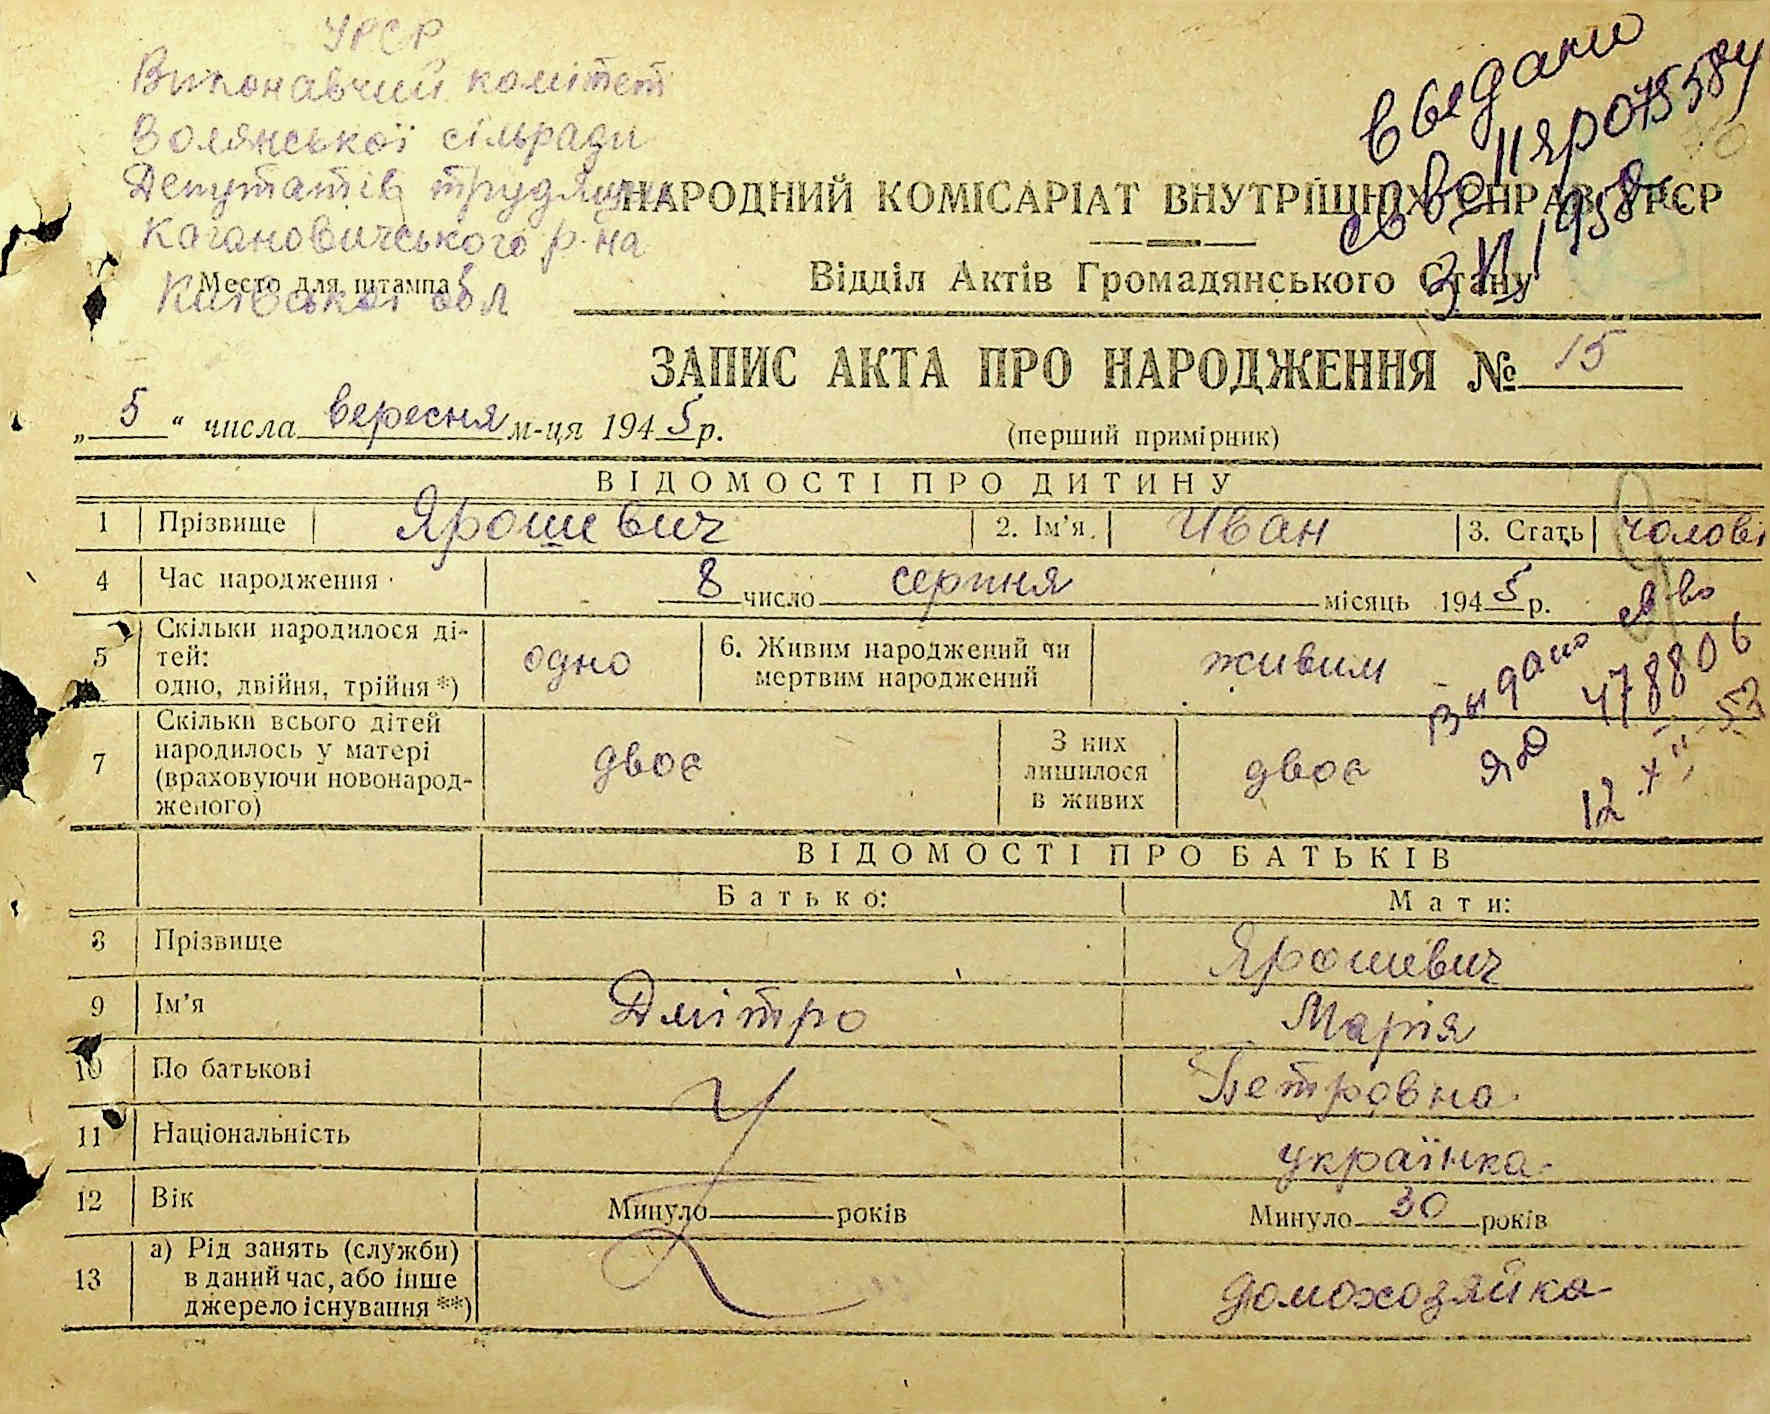 УРСР
Виконавчий комітет
Волянської сільради
Депутатів трудящих
Кагановичського р-на
Київської обл
Место для штампа
выдано
св во ІІ ЯР 0755584
3 VI 1958
НАРОДНИЙ КОМІСАРІАТ ВНУТРІШНІХ СПРАВ УРСР
Відділ Актів Громадянського Стану
ЗАПИС АКТА ПРО НАРОДЖЕННЯ № 15
„ 5 “ числа вересня м-ця 1945 р.
(перший примірник)
ВІДОМОСТІ ПРО ДИТИНУ
1 Прізвище Ярошевич 2. Ім’я. Иван 3. Стать чолові
4 Час народження 8 число серпня місяць 1945 р.
5 Скільки народилося ді-
тей:
одно, двійня, трійня *) одно 6. Живим народжений чи
мертвим народжений живим
Выдано св-во
ЯД 478806
12 XII 53
7 Скільки всього дітей
народилось у матері
(враховуючи новонарод-
женого) двоє З них
лишилося
в живих двоє
ВІДОМОСТІ ПРО БАТЬКІВ
Батько: Мати:
8 Прізвище Ярошевич
9 Ім’я Дмітро Марія
10 По батькові Петровна
11 Національність українка
12 Вік Минуло років Минуло 30 років
13 а) Рід занять (служби)
в даний час, або інше
джерело існування **) домохозяйка